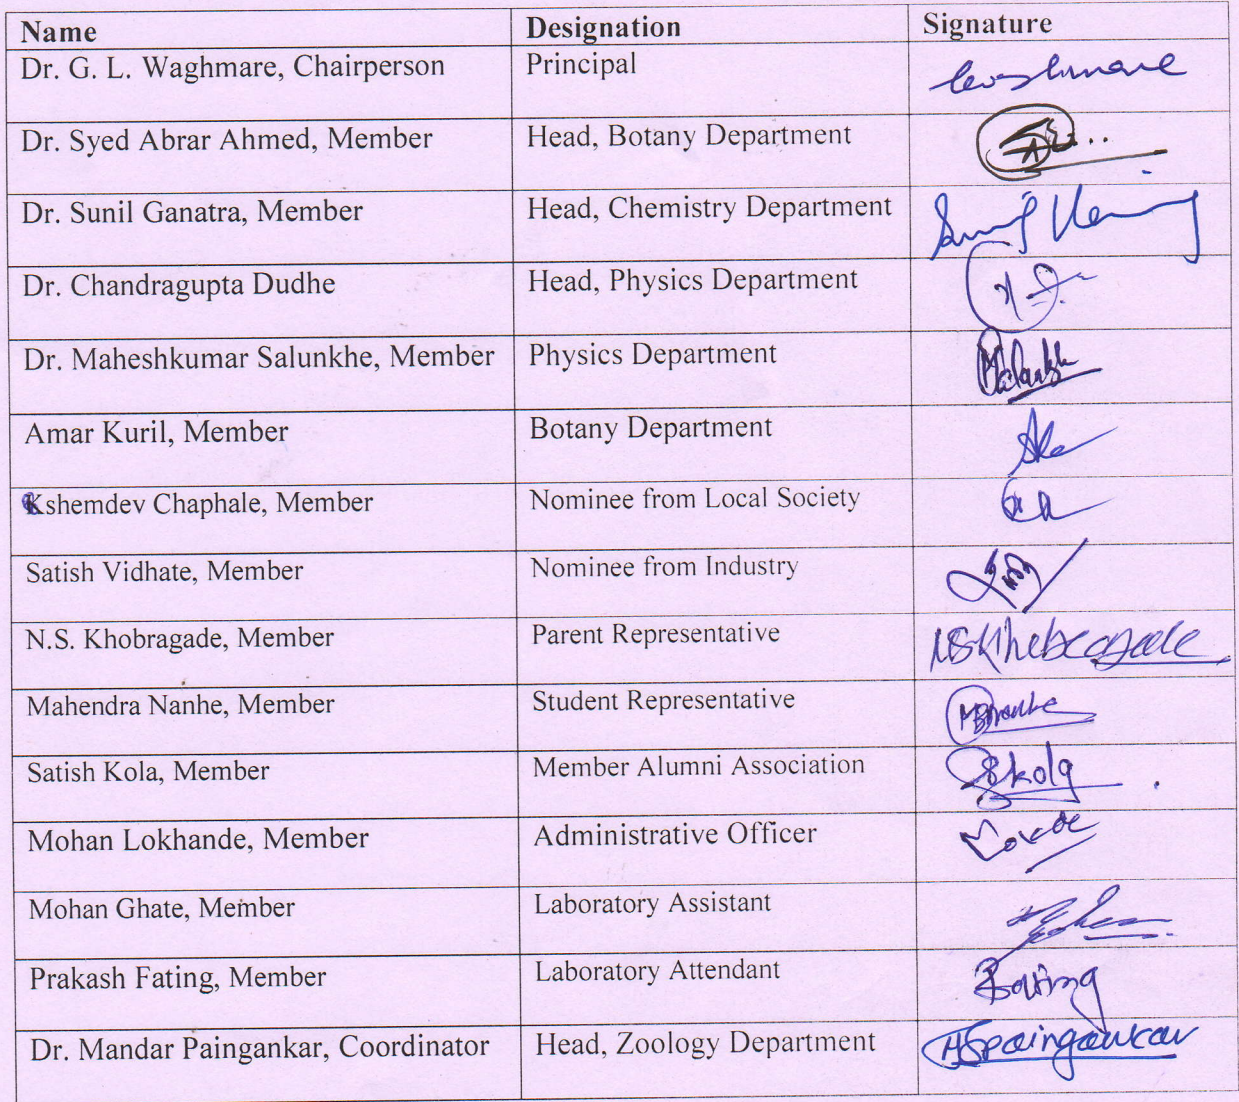 Name Designation Signature
Dr. G. L. Waghmare, Chairperson Principal Waghmare
Dr. Syed Abrar Ahmed, Member Head, Botany Department
Dr. Sunil Ganatra, Member Head, Chemistry Department
Dr. Chandragupta Dudhe Head, Physics Department
Dr. Maheshkumar Salunkhe, Member Physics Department
Amar Kuril, Member Botany Department
Kshemdev Chaphale, Member Nominee from Local Society
Satish Vidhate, Member Nominee from Industry
N.S. Khobragade, Member Parent Representative NSKhobragade
Mahendra Nanhe, Member Student Representative
Satish Kola, Member Member Alumni Association Skola
Mohan Lokhande, Member Administrative Officer
Mohan Ghate, Member Laboratory Assistant
Prakash Fating, Member Laboratory Attendant Fating
Dr. Mandar Paingankar, Coordinator Head, Zoology Department Paingankar